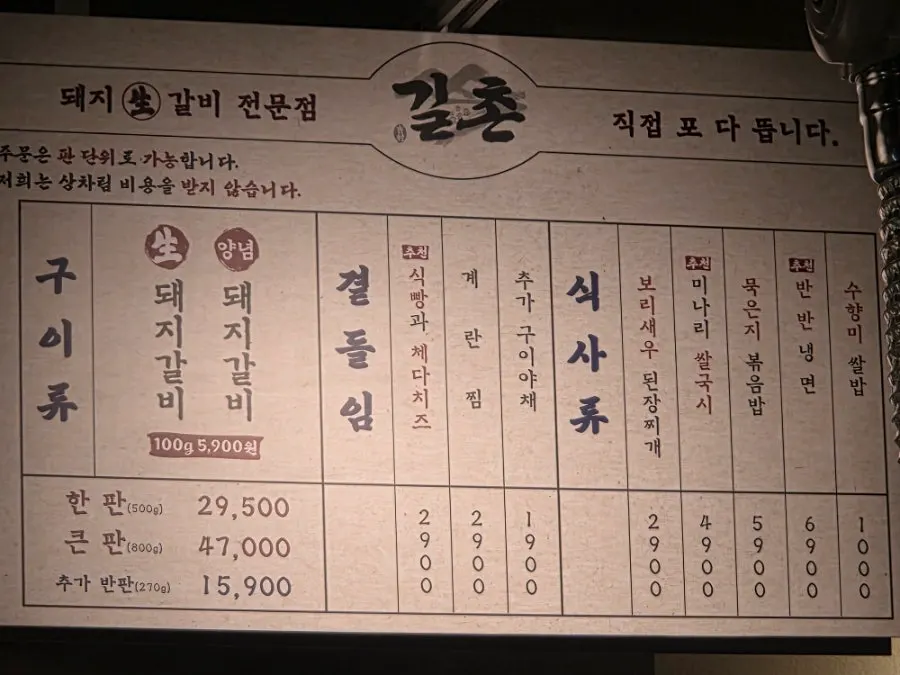 돼지 生 갈비 전문점
길촌
직접 포 다 뜹니다.
주문은 판 단위로 가능합니다.
저희는 상차림 비용을 받지 않습니다.
구이류
生 돼지갈비
양념 돼지갈비
100g 5,900원
한 판(500g) 29,500
큰 판(800g) 47,000
추가 반판(270g) 15,900
곁들임
추천 식빵과 체다치즈 2900
계란찜 2900
추가 구이야채 1900
식사류
보리새우 된장찌개 2900
추천 미나리 쌀국시 4900
묵은지 볶음밥 5900
추천 반반냉면 6900
수향미 쌀밥 1000